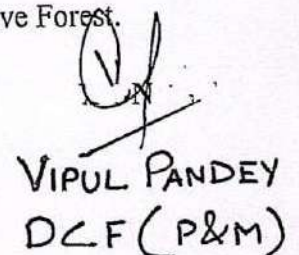 ve Forest.
VIPUL PANDEY
DCF (P&M)